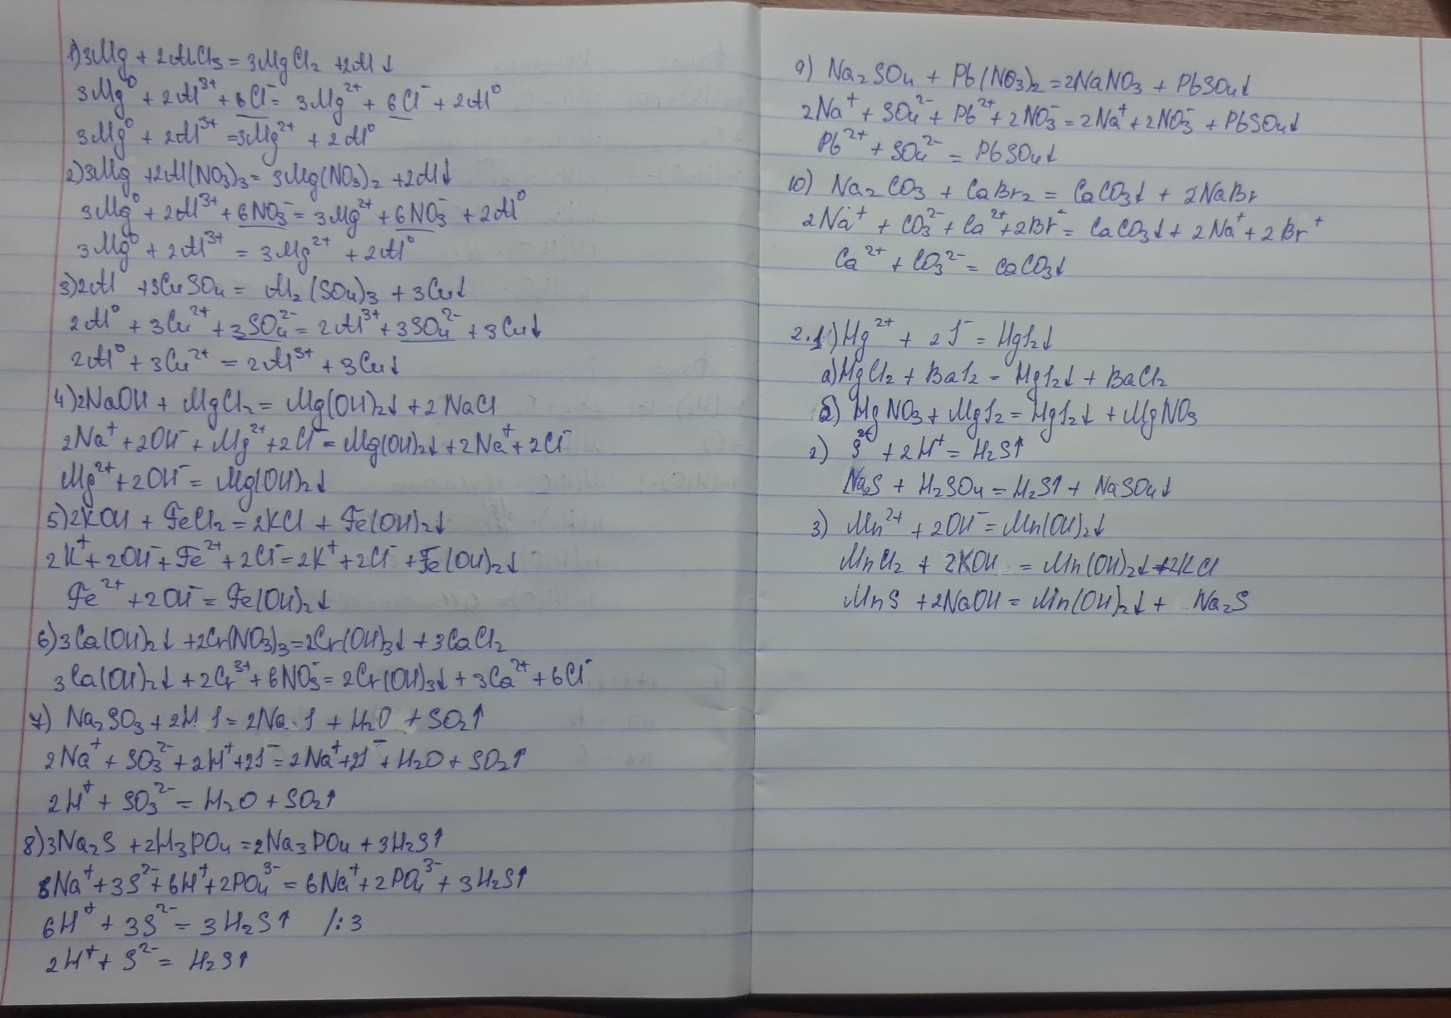 1) 3Mg + 2AlCl₃ = 3MgCl₂ + 2Al↓
3Mg⁰ + 2Al³⁺ + 6Cl⁻ = 3Mg²⁺ + 6Cl⁻ + 2Al⁰
3Mg⁰ + 2Al³⁺ = 3Mg²⁺ + 2Al⁰
2) 3Mg + 2Al(NO₃)₃ = 3Mg(NO₃)₂ + 2Al↓
3Mg⁰ + 2Al³⁺ + 6NO₃⁻ = 3Mg²⁺ + 6NO₃⁻ + 2Al⁰
3Mg⁰ + 2Al³⁺ = 3Mg²⁺ + 2Al⁰
3) 2Al + 3CuSO₄ = Al₂(SO₄)₃ + 3Cu↓
2Al⁰ + 3Cu²⁺ + 3SO₄²⁻ = 2Al³⁺ + 3SO₄²⁻ + 3Cu↓
2Al⁰ + 3Cu²⁺ = 2Al³⁺ + 3Cu↓
4) 2NaOH + MgCl₂ = Mg(OH)₂↓ + 2NaCl
2Na⁺ + 2OH⁻ + Mg²⁺ + 2Cl⁻ = Mg(OH)₂↓ + 2Na⁺ + 2Cl⁻
Mg²⁺ + 2OH⁻ = Mg(OH)₂↓
5) 2KOH + FeCl₂ = 2KCl + Fe(OH)₂↓
2K⁺ + 2OH⁻ + Fe²⁺ + 2Cl⁻ = 2K⁺ + 2Cl⁻ + Fe(OH)₂↓
Fe²⁺ + 2OH⁻ = Fe(OH)₂↓
6) 3Ca(OH)₂↓ + 2Cr(NO₃)₃ = 2Cr(OH)₃↓ + 3CaCl₂
3Ca(OH)₂↓ + 2Cr³⁺ + 6NO₃⁻ = 2Cr(OH)₃↓ + 3Ca²⁺ + 6Cl⁻
7) Na₂SO₃ + 2H I = 2Na I + H₂O + SO₂↑
2Na⁺ + SO₃²⁻ + 2H⁺ + 2I⁻ = 2Na⁺ + 2I⁻ + H₂O + SO₂↑
2H⁺ + SO₃²⁻ = H₂O + SO₂↑
8) 3Na₂S + 2H₃PO₄ = 2Na₃PO₄ + 3H₂S↑
6Na⁺ + 3S²⁻ + 6H⁺ + 2PO₄³⁻ = 6Na⁺ + 2PO₄³⁻ + 3H₂S↑
6H⁺ + 3S²⁻ = 3H₂S↑ /:3
2H⁺ + S²⁻ = H₂S↑
9) Na₂SO₄ + Pb(NO₃)₂ = 2NaNO₃ + PbSO₄↓
2Na⁺ + SO₄²⁻ + Pb²⁺ + 2NO₃⁻ = 2Na⁺ + 2NO₃⁻ + PbSO₄↓
Pb²⁺ + SO₄²⁻ = PbSO₄↓
10) Na₂CO₃ + CaBr₂ = CaCO₃↓ + 2NaBr
2Na⁺ + CO₃²⁻ + Ca²⁺ + 2Br⁻ = CaCO₃↓ + 2Na⁺ + 2Br⁺
Ca²⁺ + CO₃²⁻ = CaCO₃↓
2.1) Hg²⁺ + 2I⁻ = HgI₂↓
а) HgCl₂ + BaI₂ = HgI₂↓ + BaCl₂
б) HgNO₃ + MgI₂ = HgI₂↓ + MgNO₃
2) S²⁻ + 2H⁺ = H₂S↑
Na₂S + H₂SO₄ = H₂S↑ + NaSO₄↓
3) Mn²⁺ + 2OH⁻ = Mn(OH)₂↓
MnCl₂ + 2KOH = Mn(OH)₂↓ + 2KCl
MnS + 2NaOH = Mn(OH)₂↓ + Na₂S